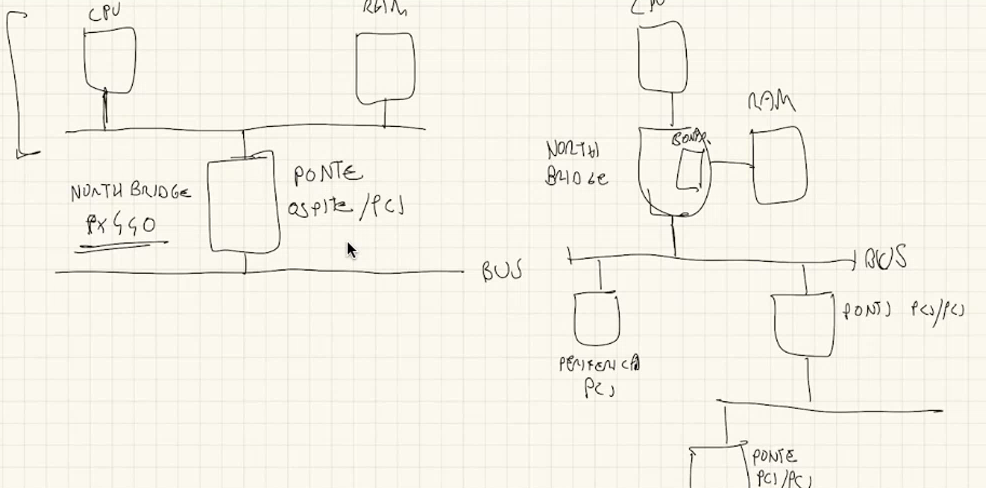 CPU
RAM
NORTH BRIDGE
PX440
PONTE
OSPITE/PCI
BUS
RAM
NORTH
BRIDGE
BUS
PERIFERICA
PCI
PONTI PCI/PCI
PONTE
PCI/PCI